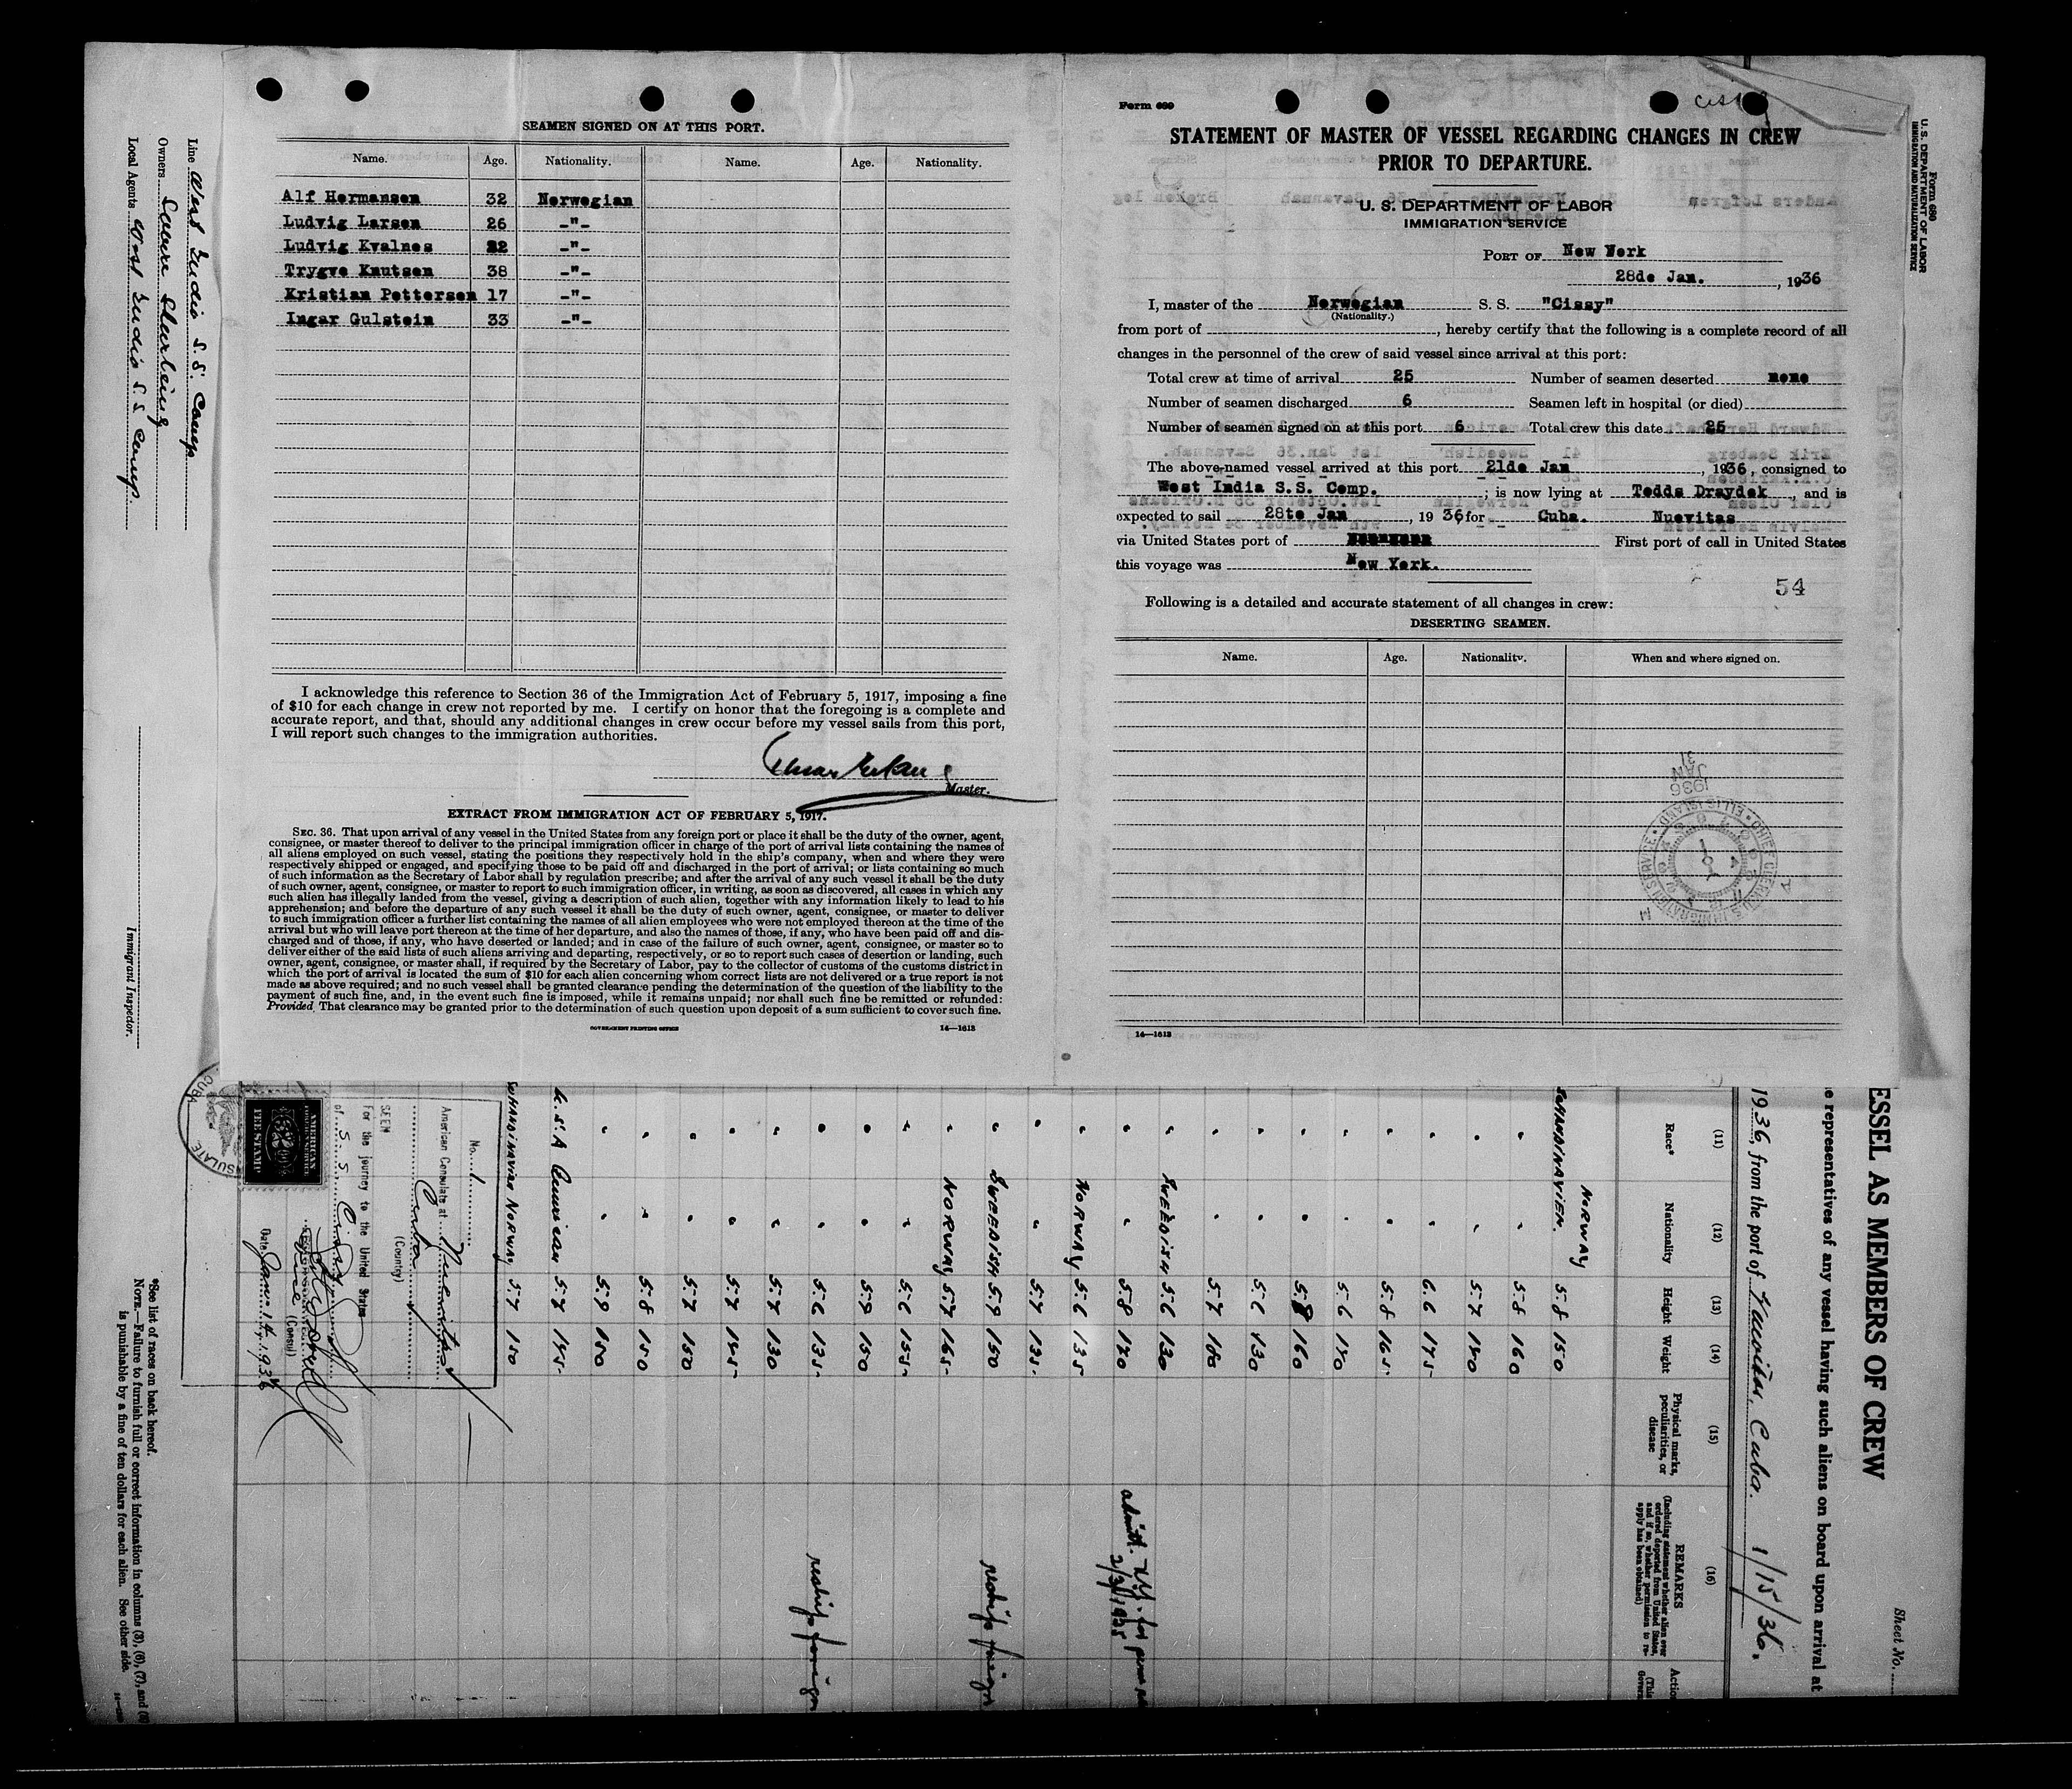 SEAMEN SIGNED ON AT THIS PORT.
Name. Age. Nationality. Name. Age. Nationality.
Alf Hermansen 32 Norwegian
Ludvig Larsen 26 -"-
Ludvig Kvalnes 22 -"-
Trygve Knutsen 38 -"-
Kristian Pettersen 17 -"-
Ingar Gulstein 33 -"-
I acknowledge this reference to Section 36 of the Immigration Act of February 5, 1917, imposing a fine
of $10 for each change in crew not reported by me. I certify on honor that the foregoing is a complete and
accurate report, and that, should any additional changes in crew occur before my vessel sails from this port,
I will report such changes to the immigration authorities.
Master.
EXTRACT FROM IMMIGRATION ACT OF FEBRUARY 5, 1917.
SEC. 36. That upon arrival of any vessel in the United States from any foreign port or place it shall be the duty of the owner, agent,
consignee, or master thereof to deliver to the principal immigration officer in charge of the port of arrival lists containing the names of
all aliens employed on such vessel, stating the positions they respectively hold in the ship's company, when and where they were
respectively shipped or engaged, and specifying those to be paid off and discharged in the port of arrival; or lists containing so much
of such information as the Secretary of Labor shall by regulation prescribe; and after the arrival of any such vessel it shall be the duty
of such owner, agent, consignee, or master to report to such immigration officer, in writing, as soon as discovered, all cases in which any
such alien has illegally landed from the vessel, giving a description of such alien, together with any information likely to lead to his
apprehension; and before the departure of any such vessel it shall be the duty of such owner, agent, consignee, or master to deliver
to such immigration officer a further list containing the names of all alien employees who were not employed thereon at the time of the
arrival but who will leave port thereon at the time of her departure, and also the names of those, if any, who have been paid off and dis-
charged and of those, if any, who have deserted or landed; and in case of the failure of such owner, agent, consignee, or master so to
deliver either of the said lists of such aliens arriving and departing, respectively, or so to report such cases of desertion or landing, such
owner, agent, consignee, or master shall, if required by the Secretary of Labor, pay to the collector of customs of the customs district in
which the port of arrival is located the sum of $10 for each alien concerning whom correct lists are not delivered or a true report is not
made as above required; and no such vessel shall be granted clearance pending the determination of the question of the liability to the
payment of such fine, and, in the event such fine is imposed, while it remains unpaid; nor shall such fine be remitted or refunded:
Provided, That clearance may be granted prior to the determination of such question upon deposit of a sum sufficient to cover such fine.
GOVERNMENT PRINTING OFFICE 14—1613
Form 689
STATEMENT OF MASTER OF VESSEL REGARDING CHANGES IN CREW
PRIOR TO DEPARTURE.
U. S. DEPARTMENT OF LABOR
IMMIGRATION SERVICE
PORT OF New Nerk
28de Jan. , 1936
I, master of the Norwegian S. S. "Cissy"
(Nationality.)
from port of , hereby certify that the following is a complete record of all
changes in the personnel of the crew of said vessel since arrival at this port:
Total crew at time of arrival 25 Number of seamen deserted none
Number of seamen discharged 6 Seamen left in hospital (or died)
Number of seamen signed on at this port 6 Total crew this date 25
The above-named vessel arrived at this port 21de Jan , 1936, consigned to
West India S.S. Comp. ; is now lying at Todds Draydek , and is
expected to sail 28te Jan , 1936, for Cuba. Nuevitas
via United States port of First port of call in United States
this voyage was New York.
54
Following is a detailed and accurate statement of all changes in crew:
DESERTING SEAMEN.
Name. Age. Nationality. When and where signed on.
14—1613
JAN 31 1936
Form 689
U. S. DEPARTMENT OF LABOR
IMMIGRATION AND NATURALIZATION SERVICE
Line West India S.S. Comp
Owners
Local Agents West India S.S Comp.
Immigrant Inspector.
ESSEL AS MEMBERS OF CREW
Sheet No.
e representatives of any vessel having such aliens on board upon arrival at
1936, from the port of Nuevitas, Cuba. 1/15/36.
(11) (12) (13) (14) (15) (16)
Race* Nationality Height Weight Physical marks, peculiarities, or disease REMARKS
(Including statement whether alien ever ordered deported from United States, and if so, whether permission to re-apply has been obtained)
SCANDINAVIEN. NORWAY 5.8 150
5.8 160
5.7 140
6.6 175
5.8 165
5.6 140
5.8 160
5.6 130
5.7 180
SWEEDISH 5.6 130
5.8 170
NORWAY 5.6 135
5.7 135
SWEEDISH 5.9 150
NORWAY 5.7 165
5.6 155
5.9 150
5.6 135
5.7 130
5.7 145
5.7 150
5.8 150
5.9 150
U.S.A American 5.7 145
SCANDINAVIEN NORWAY 5.7 150
reship foreign
reship foreign
No. 1
American Consulate at Nuevitas
Cuba
(Country)
SEEN
For the journey to the United States
of S S Cissy
(Consul)
Date Jan. 14, 1936
AMERICAN
CONSULAR SERVICE
$2.00
FEE STAMP
*See list of races on back hereof.
NOTE.—Failure to furnish full or correct information in columns (3), (6), (7), and (8)
is punishable by a fine of ten dollars for each alien. See other side.